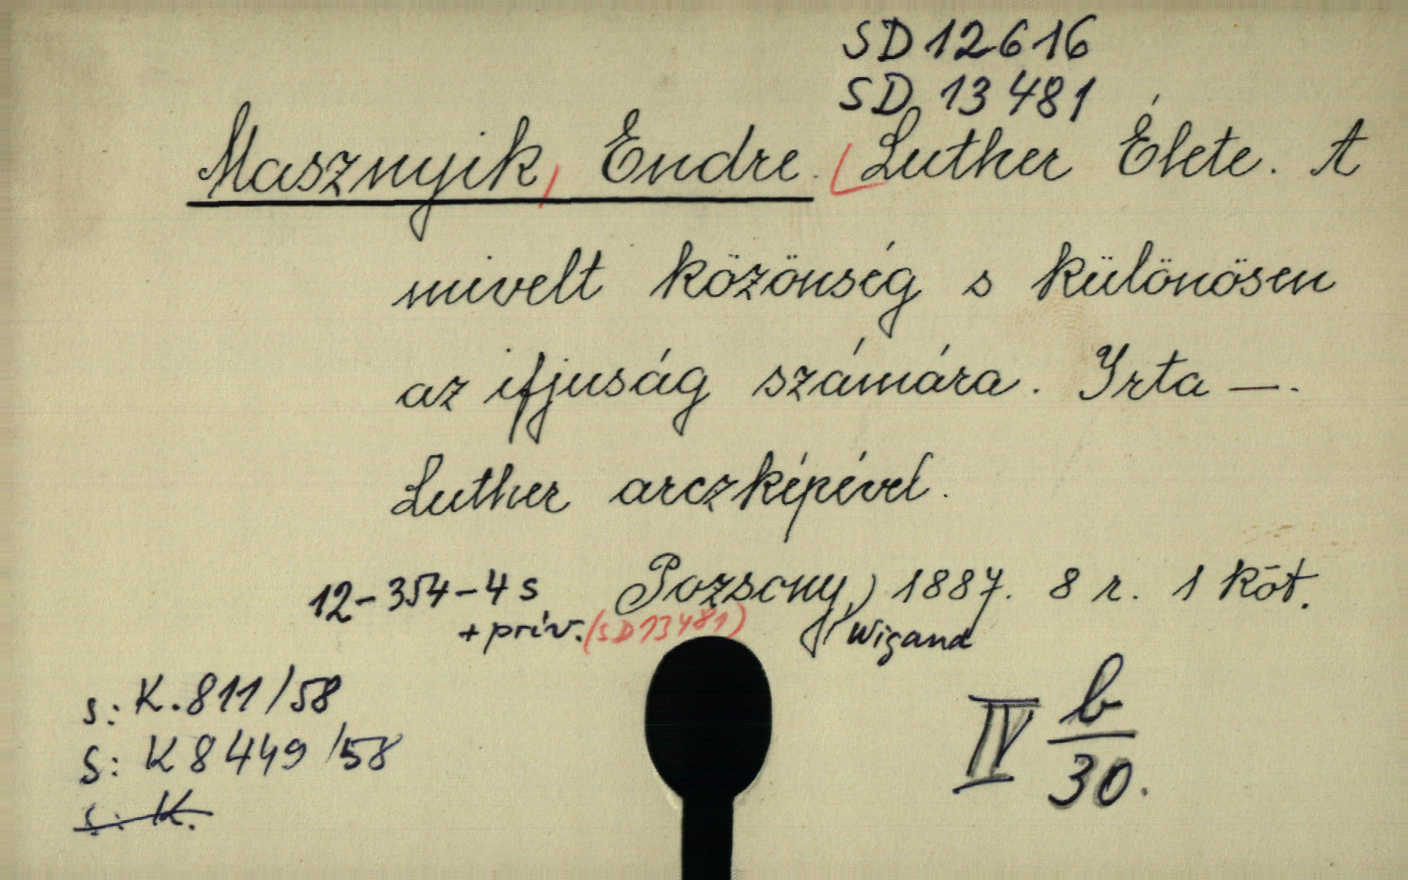 SD 12616
SD 13481
Masznyik, Endre. Luther Élete. A
mivelt közönség s különösen
az ifjuság számára. Irta —.
Luther arczképével.
12-354-4 s Pozsony, 1887. 8 r. 1 köt.
+ priv. (SD 13481) Wigand
s: K. 811/58
S: K 8449/58
s: K.
IV b
30.